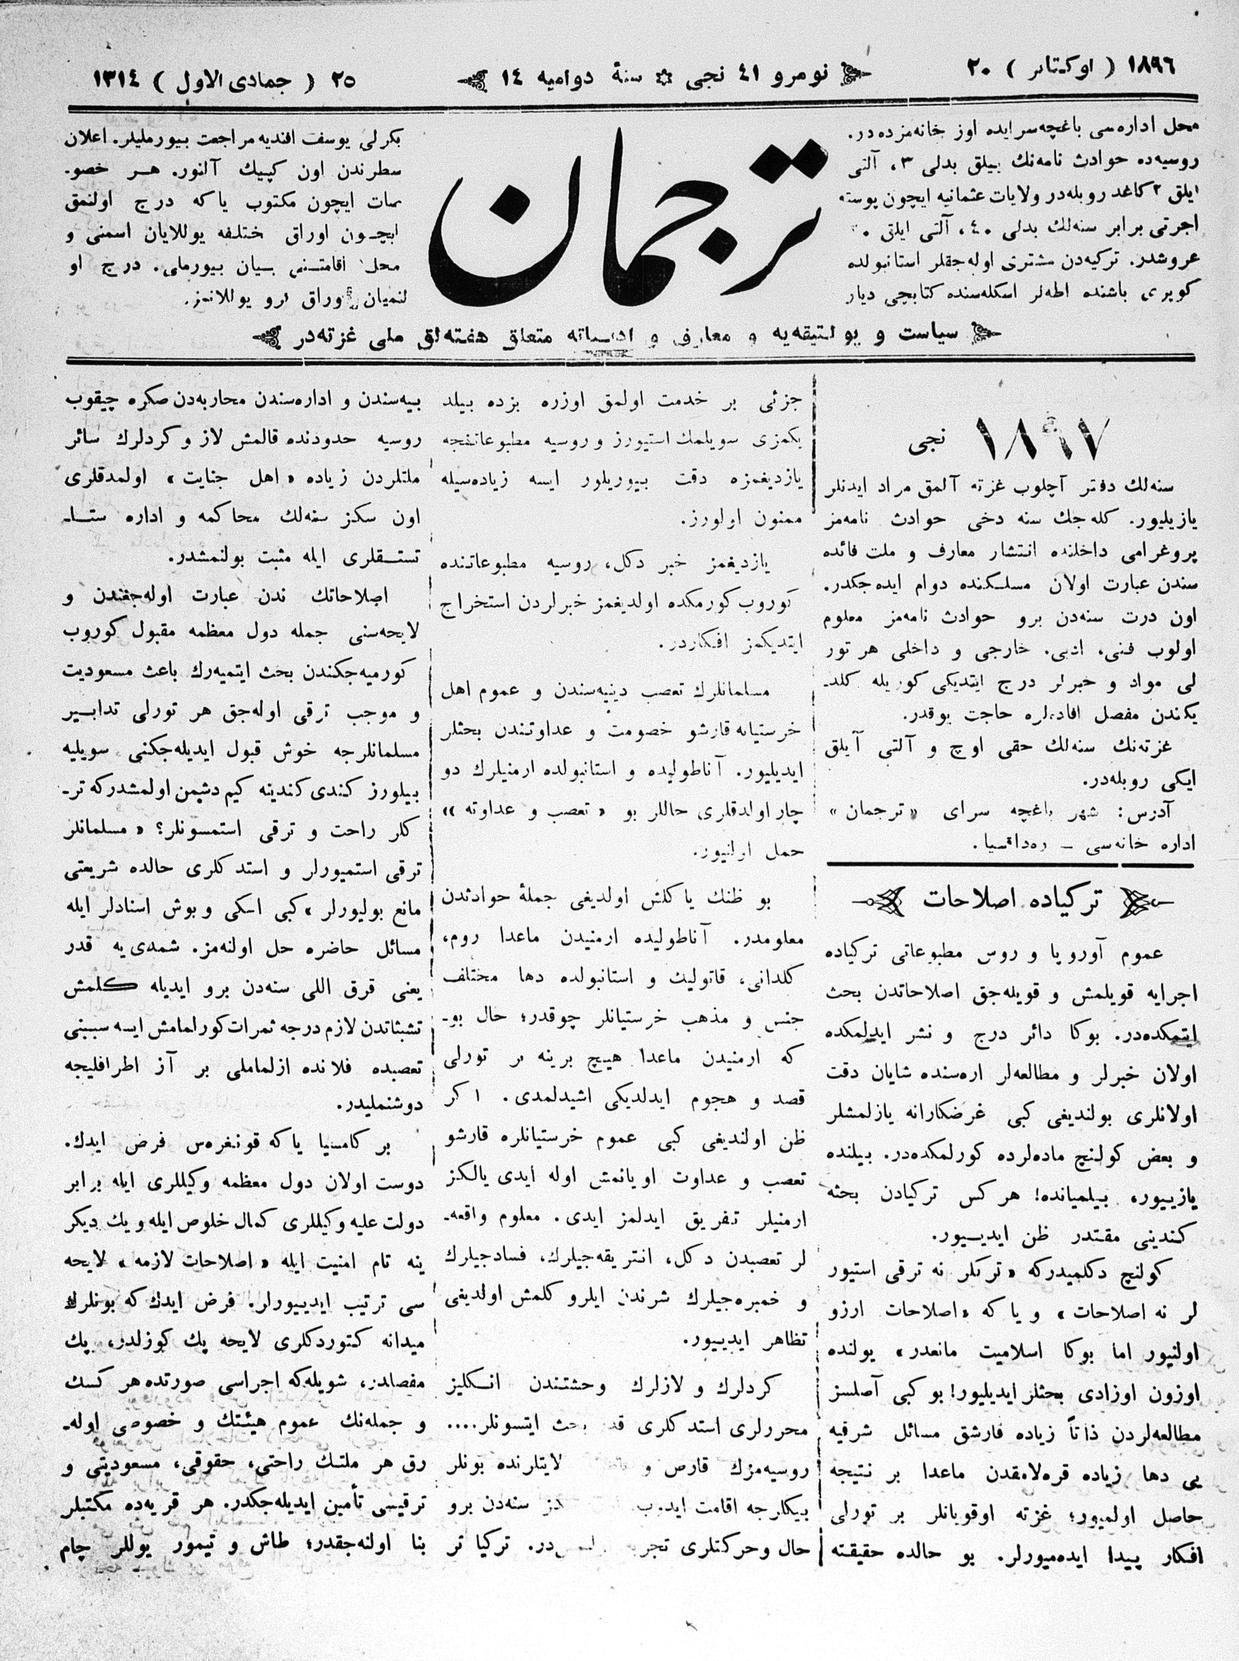 ١٨٩٦ ( اوكتابر ) ٢٠
نومرو ٤١ نجى ✡ سنۀ دواميه ١٤
٢٥ ( جمادى الاول ) ١٣١٤
محل اداره‌سى باغچه‌سرايده اوز خانه‌مزده‌در.
روسيه‌ده حوادث نامه‌نك ييلق بدلى ٣، آلتى
ايلق ٢ كاغد روبله‌در ولايات عثمانيه ايچون پوسته
اجرتى برابر سنه‌لك بدلى ٤٠، آلتى ايلق
غروشدر. تركيه‌دن مشترى اوله‌جقلر استانبولده
كوپرى باشنده اطه‌لر اسكله‌سنده كتابچى ديار
ترجمان
بكرلى يوسف افنديه مراجعت بيورمليلر. اعلان
سطرندن اون كپيك آلنور. هر خصو‍ـ
صات ايچون مكتوب ياكه درج اولنمق
ايچون اوراق مختلفه يوللايان اسمنى و
محل اقامتنى بيان بيورملى. درج او
لنميان اوراق كرو يوللانمز.
سياست و پولتيقه‌يه و معارف و ادبياته متعلق هفته‌لق ملى غزته‌در
١٨٩٧ نجى
سنه‌لك دفتر آچلوب غزته آلمق مراد ايدنلر
يازيليور. كله‌جك سنه دخى حوادث نامه‌مز
پروغرامى داخلنده انتشار معارف و ملت فائده
سندن عبارت اولان مسلكنده دوام ايده‌جكدر.
اون درت سنه‌دن برو حوادث نامه‌مز معلوم
اولوب فنى، ادبى. خارجى و داخلى هر تور
لى مواد و خبرلر درج ايتديكى كوريله كلد‍ـ
يكندن مفصل افاده‌لره حاجت يوقدر.
غزته‌نك سنه‌لك حقى اوچ و آلتى آيلق
ايكى روبله‌در.
آدرس: شهر باغچه سراى «ترجمان»
اداره خانه‌سى ـ ره‌داقسيا.
تركياده اصلاحات
عموم آوروپا و روس مطبوعاتى تركياده
اجرايه قويلمش و قويله‌جق اصلاحاتدن بحث
ايتمكده‌در. بوكا دائر درج و نشر ايدلمكده
اولان خبرلر و مطالعه‌لر اره‌سنده شايان دقت
اولانلرى بولنديغى كبى غرضكارانه يازلمشلر
و بعض كولنچ ماده‌لرده كورلمكده‌در. بيلنده
يازييور، بيلميانده! هر كس تركيادن بحثه
كندينى مقتدر ظن ايدييور.
كولنچ دكلميدركه «تركلر نه ترقى استيور
لر نه اصلاحات» و ياكه «اصلاحات ارزو
اولنيور اما بوكا اسلاميت مانعدر» يولنده
اوزون اوزادى بحثلر ايديليور! بوكبى آصلسز
مطالعه‌لردن ذاتاً زياده قارشق مسائل شرقيه
يى دها زياده قره‌لامقدن ماعدا بر نتيجه
حاصل اولميور؛ غزته اوقويانلر بر تورلى
افكار پيدا ايده‌ميورلر. بو حالده حقيقته
جزئى بر خدمت اولمق اوزره بزده بيلد
يكمزى سويلمك استيورز و روسيه مطبوعاتنجه
يازديغمزه دقت بيوريلور ايسه زياده‌سيله
ممنون اولورز.
يازديغمز خبر دكل، روسيه مطبوعاتنده
كوروب كورمكده اولديغمز خبرلردن استخراج
ايتديكمز افكاردر.
مسلمانلرك تعصب دينيه‌سندن و عموم اهل
خرستيانه قارشو خصومت و عداوتندن بحثلر
ايديليور. آناطوليده و استانبولده ارمنيلرك دو
چار اولدقلرى حاللر بو «تعصب و عداوته»
حمل اولنيور.
بو ظنك ياكلش اولديغى جملۀ حوادثدن
معلومدر. آناطوليده ارمنيدن ماعدا روم،
كلدانى، قاتوليك و استانبولده دها مختلف
جنس و مذهب خرستيانلر چوقدر؛ حال بو‍ـ
كه ارمنيدن ماعدا هيچ برينه بر تورلى
قصد و هجوم ايدلديكى اشيدلمدى. اكر
ظن اولنديغى كبى عموم خرستيانلره قارشو
تعصب و عداوت اويانمش اوله ايدى يالكز
ارمنيلر تفريق ايدلمز ايدى. معلوم واقعه‍ـ
لر تعصبدن دكل، انتريقه‌جيلرك، فسادجيلرك
و خمبره‌جيلرك شرندن ايلرو كلمش اولديغى
تظاهر ايدييور.
كردلرك و لازلرك وحشتندن انكليز
محررلرى استدكلرى قدر بحث ايتسونلر....
روسيه‌مزك قارص و لايتلرنده بونلر
بيكلرجه اقامت ايدوب سنه‌دن برو
حال و حركتلرى تجربه در. تركيا تر
بيه‌سندن و اداره‌سندن محاربه‌دن صكره چيقوب
روسيه حدودنده قالمش لاز و كردلرك سائر
ملتلردن زياده «اهل جنايت» اولمدقلرى
اون سكز سنه‌لك محاكمه و اداره ستا‍ـ
تستقلرى ايله مثبت بولنمشدر.
اصلاحاتك ندن عبارت اوله‌جغندن و
لايحه‌سنى جمله دول معظمه مقبول كوروب
كورميه‌جكندن بحث ايتميه‌رك باعث مسعوديت
و موجب ترقى اوله‌جق هر تورلى تدابير
مسلمانلرجه خوش قبول ايديله‌جكنى سويليه
بيلورز كندى كندينه كيم دشمن اولمشدركه تر‍ـ
كلر راحت و ترقى استمسونلر؟ «مسلمانلر
ترقى استميورلر و استدكلرى حالده شريعتى
مانع بوليورلر» كبى اسكى و بوش اسنادلر ايله
مسائل حاضره حل اولنه‌مز. شمدى‌يه قدر
يعنى قرق اللى سنه‌دن برو ايديله كلمش
تشبثاتدن لازم درجه ثمرات كورلمامش ايسه سببنى
تعصبده فلانده ازلماملى بر آز اطرافليجه
دوشنمليدر.
بر كامسيا ياكه قونغره‌س فرض ايدك.
دوست اولان دول معظمه وكيللرى ايله برابر
دولت عليه وكيللرى كمال خلوص ايله و يك ديكر
ينه تام امنيت ايله «اصلاحات لازمه» لايحه
سى ترتيب ايدييورلر. فرض ايدك كه بونلرك
ميدانه كتوردكلرى لايحه پك كوزلدر، پك
مفصلدر، شويله‌كه اجراسى صورتده هر كسك
و جمله‌نك عموم هيئتك و خصوصى اوله‍ـ
رق هر ملتك راحتى، حقوقى، مسعوديتى و
ترقيسى تأمين ايديله‌جكدر. هر قريه‌ده مكتبلر
بنا اولنه‌جقدر؛ طاش و تيمور يوللر چام